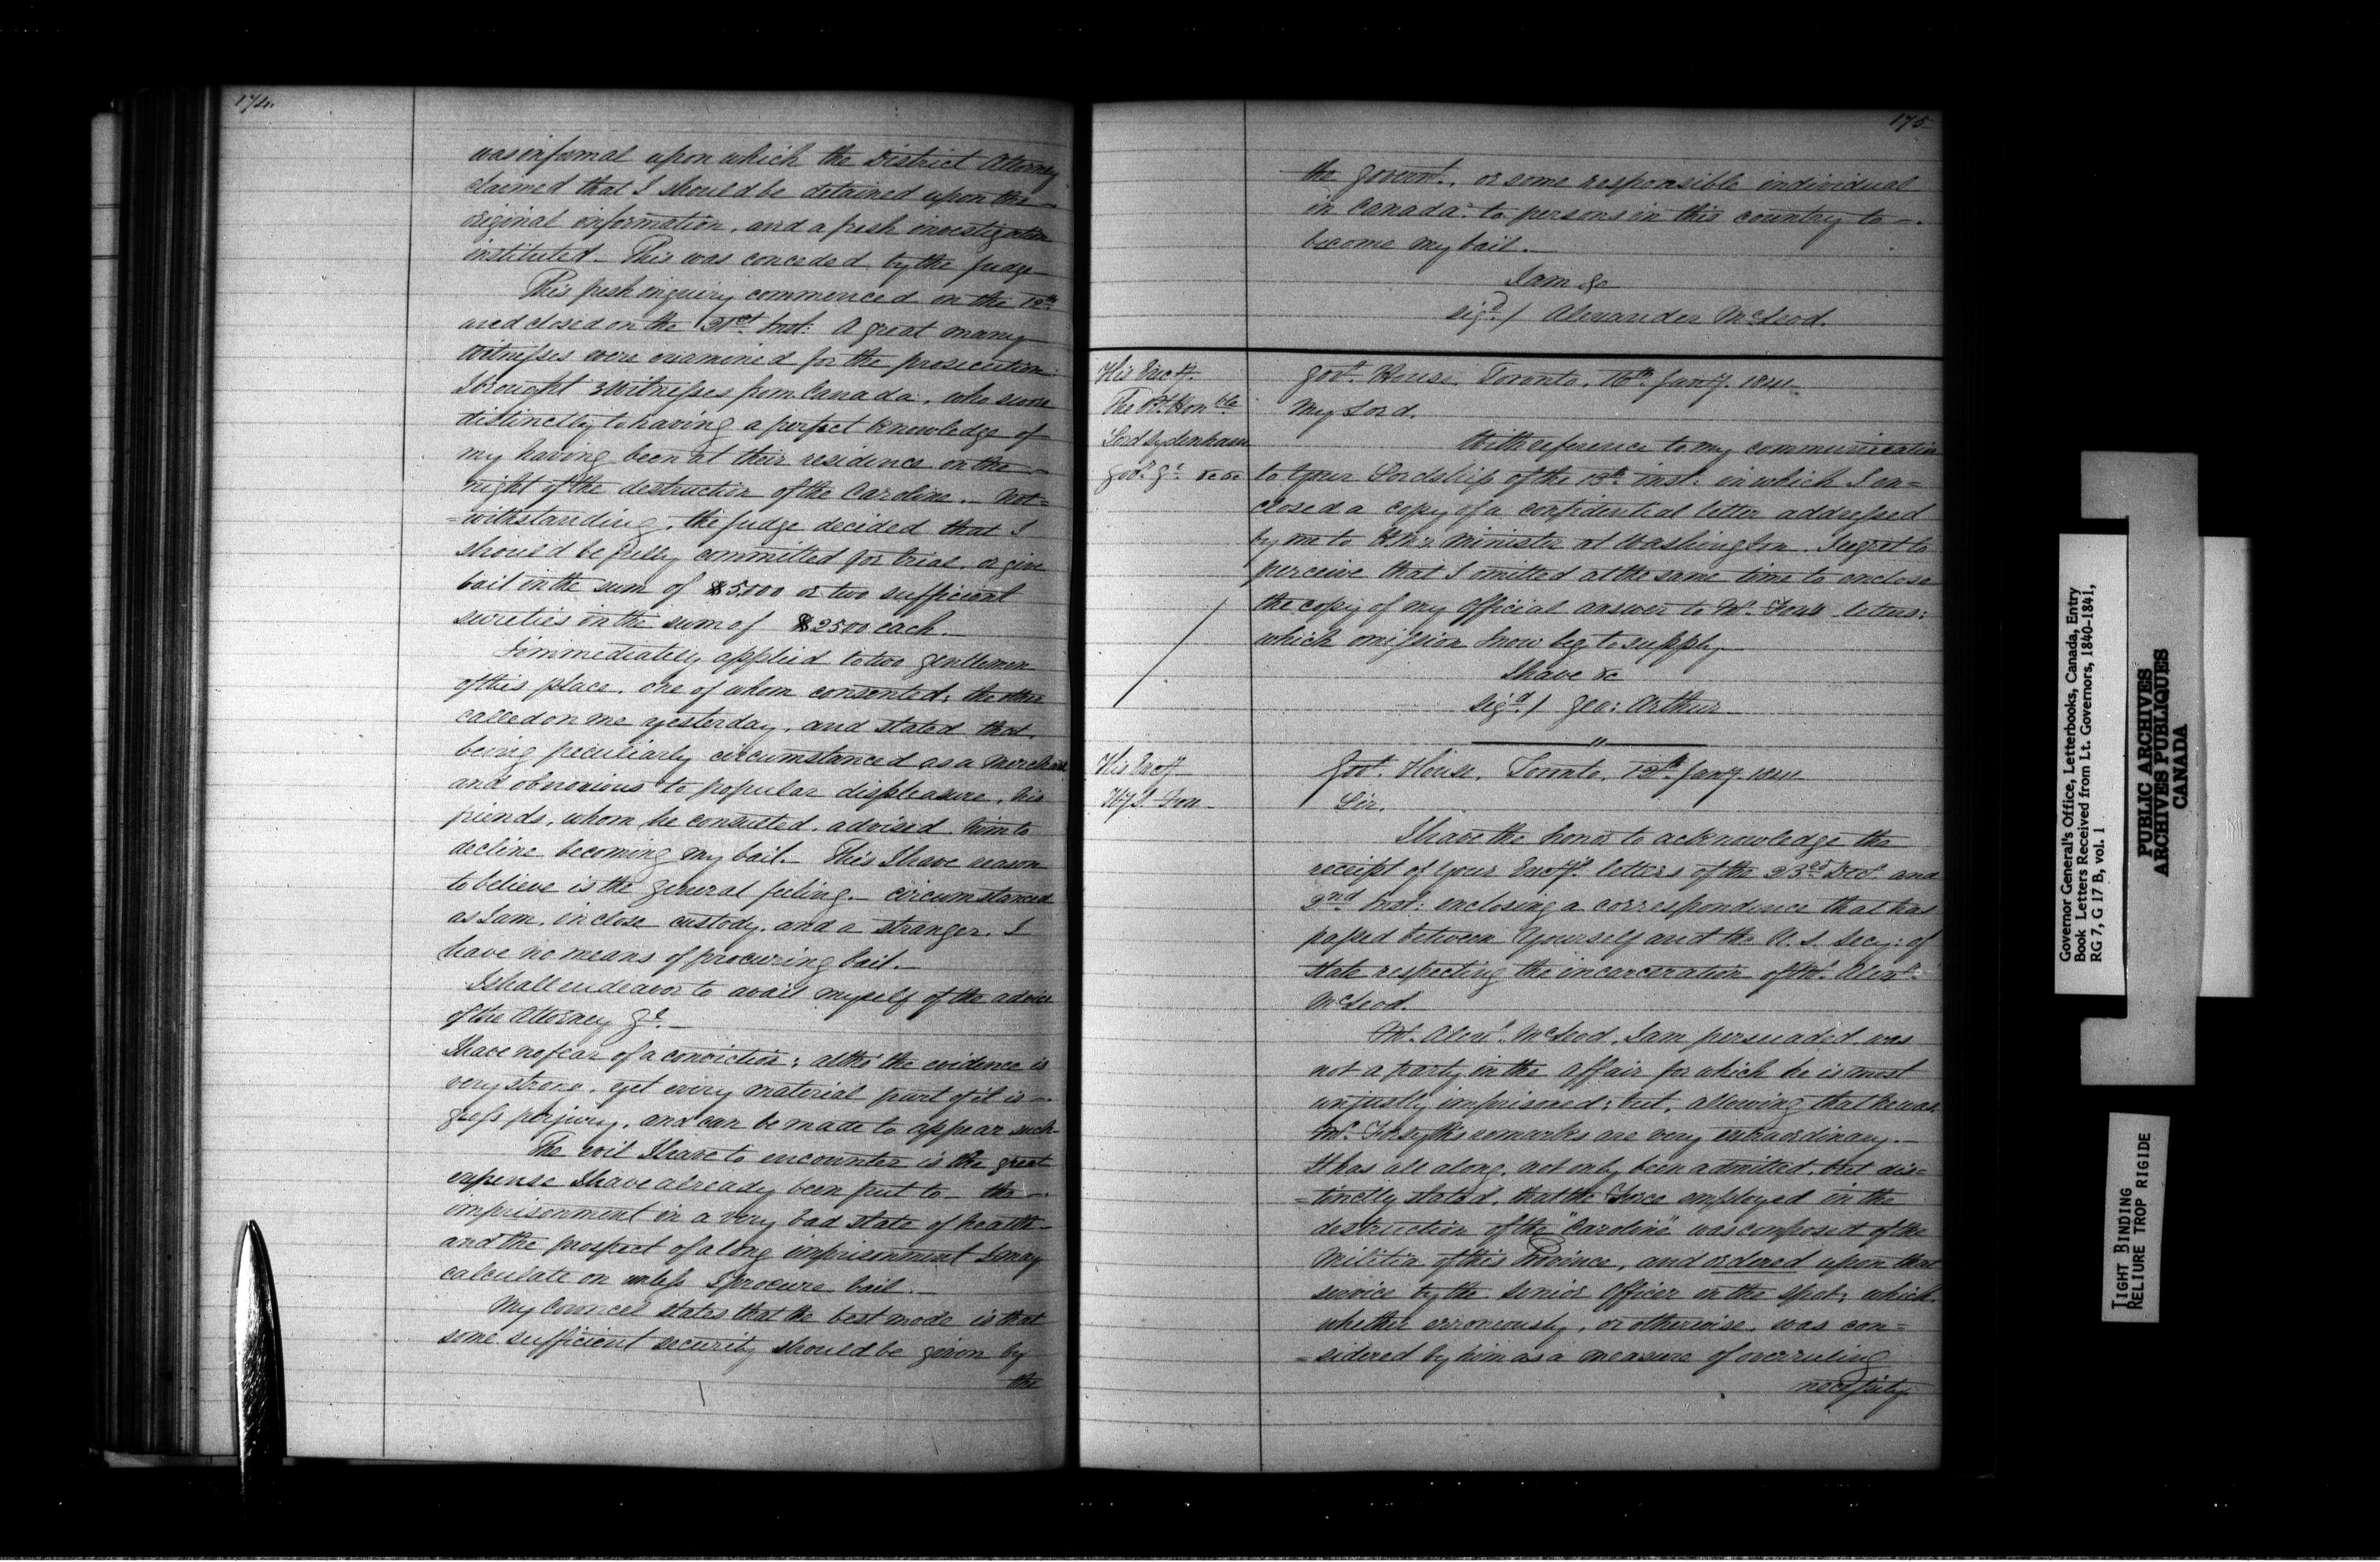 174.
was informal upon which the District Attorney
claimed that I should be detained upon the
original information, and a fresh investigation
instituted. This was conceded by the Judge
This fresh inquiry commenced on the
and closed on the 21st Inst: A great many
witnesses were examined for the prosecution
I brought 3 witnesses from Canada, who swore
distinctly to having a perfect knowledge of
my having been at their residence on the
night of the destruction of the Caroline. - Not=
=withstanding, the Judge decided that I
should be fully committed for trial, or give
bail in the sum of $5.000 or two sufficient
sureties in the sum of $2500 each.
I immediately applied to two gentlemen
of this place, one of whom consented; the other
called on me yesterday, and stated that,
being peculiarly circumstanced as a Merchant
and obnoxious to popular displeasure, his
friends, whom he consulted, advised him to
decline becoming my bail. This I have reason
to believe is the general feeling. - circumstanced
as I am, in close custody, and a stranger, I
have no means of procuring bail.
I shall endeavor to avail myself of the advice
of the Attorney Gl. -
I have no fear of a conviction; altho' the evidence is
very strong, yet every material part of it is
gross perjury, and can be made to appear such
The evil I have to encounter is the great
expense I have already been put to - the
imprisonment in a very bad state of health
and the prospect of a long imprisonment I may
calculate on unless I procure bail.
My Councel states that the best mode is that
some sufficient security should be given by
the
175
the Governt., or some responsible individual
in Canada to persons in this country to
become my bail.
I am &c
sigd./ Alexander McLeod.
His Excy.
The Rt. Honble
Lord Sydenham
Govr. Gl. &c &c
Govt. House, Toronto, 16th Jany. 1841
My Lord,
With reference to my communication
to Your Lordship of the 13th inst: in which I en=
closed a copy of a confidential letter addressed
by me to H.M's Minister at Washington. I regret to
perceive that I omitted at the same time to enclose
the copy of my Official answer to Mr. Fox's letters;
which omission I now beg to supply
I have &c
Sigd./ Geo: Arthur
His Excy
H. S. Fox
Govt. House, Toronto, Jany. 1841
Sir,
I have the honor to acknowledge the
receipt of Your Excy's. letters of the 23rd Decr. and
2nd Inst: enclosing a correspondence that has
passed between Yourself and the U. S. Secy: of
State respecting the incarceration of Mr. Alexr.
McLeod.
Mr. Alexr. McLeod, I am persuaded was
not a party in the affair for which he is most
unjustly imprisoned; but, allowing that he was,
Mr. Forsyth's remarks are very extraordinary. -
It has all along, not only been admitted, but dis=
=tinctly stated, that the Force employed in the
destruction of the "Caroline" was composed of the
Militia of this Province, and ordered upon that
service by the Senior Officer on the Spot; which
whether erroneously, or otherwise, was con=
=sidered by him as a measure of overruling
necessity
Governor General's Office, Letterbooks, Canada, Entry
Book Letters Received from Lt. Governors, 1840-1841,
RG 7, G 17 B, vol. 1
PUBLIC ARCHIVES
ARCHIVES PUBLIQUES
CANADA
TIGHT BINDING
RELIURE TROP RIGIDE